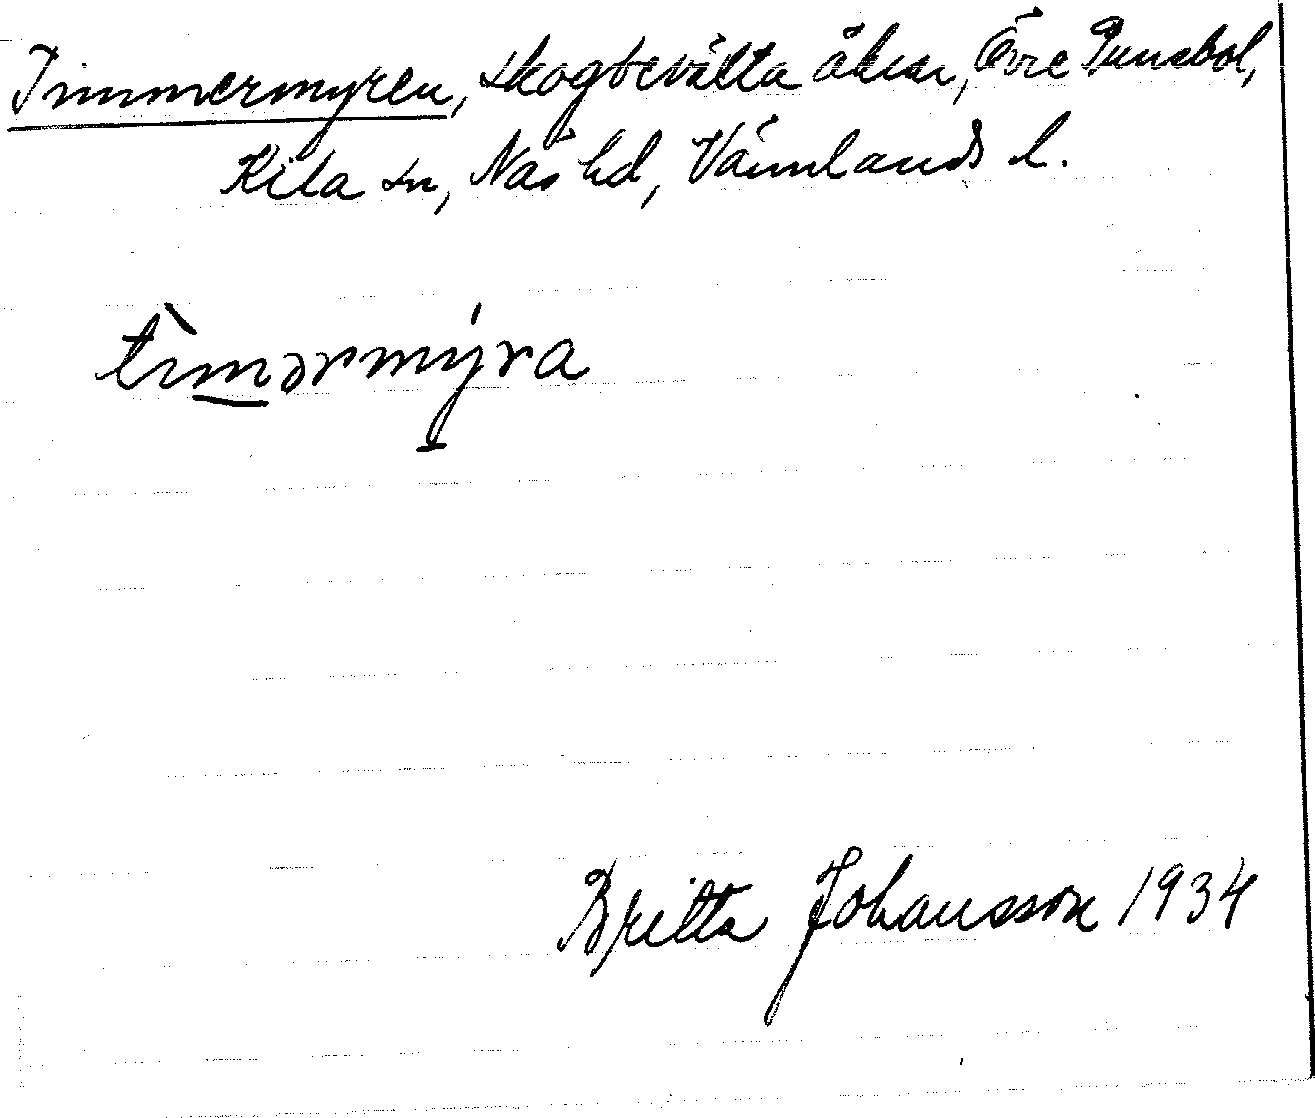 Timmermyren, skogbevälta åkrar, Övre Punebol,
Kila sn, Näs hd, Värmlands l.
tìmərmýra
Britta Johansson 1934